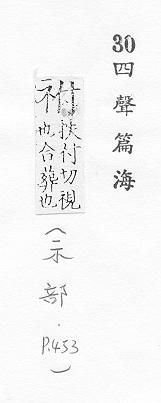 30 四聲篇海
祔 扶付切視
也合葬也
(示部．P.453)